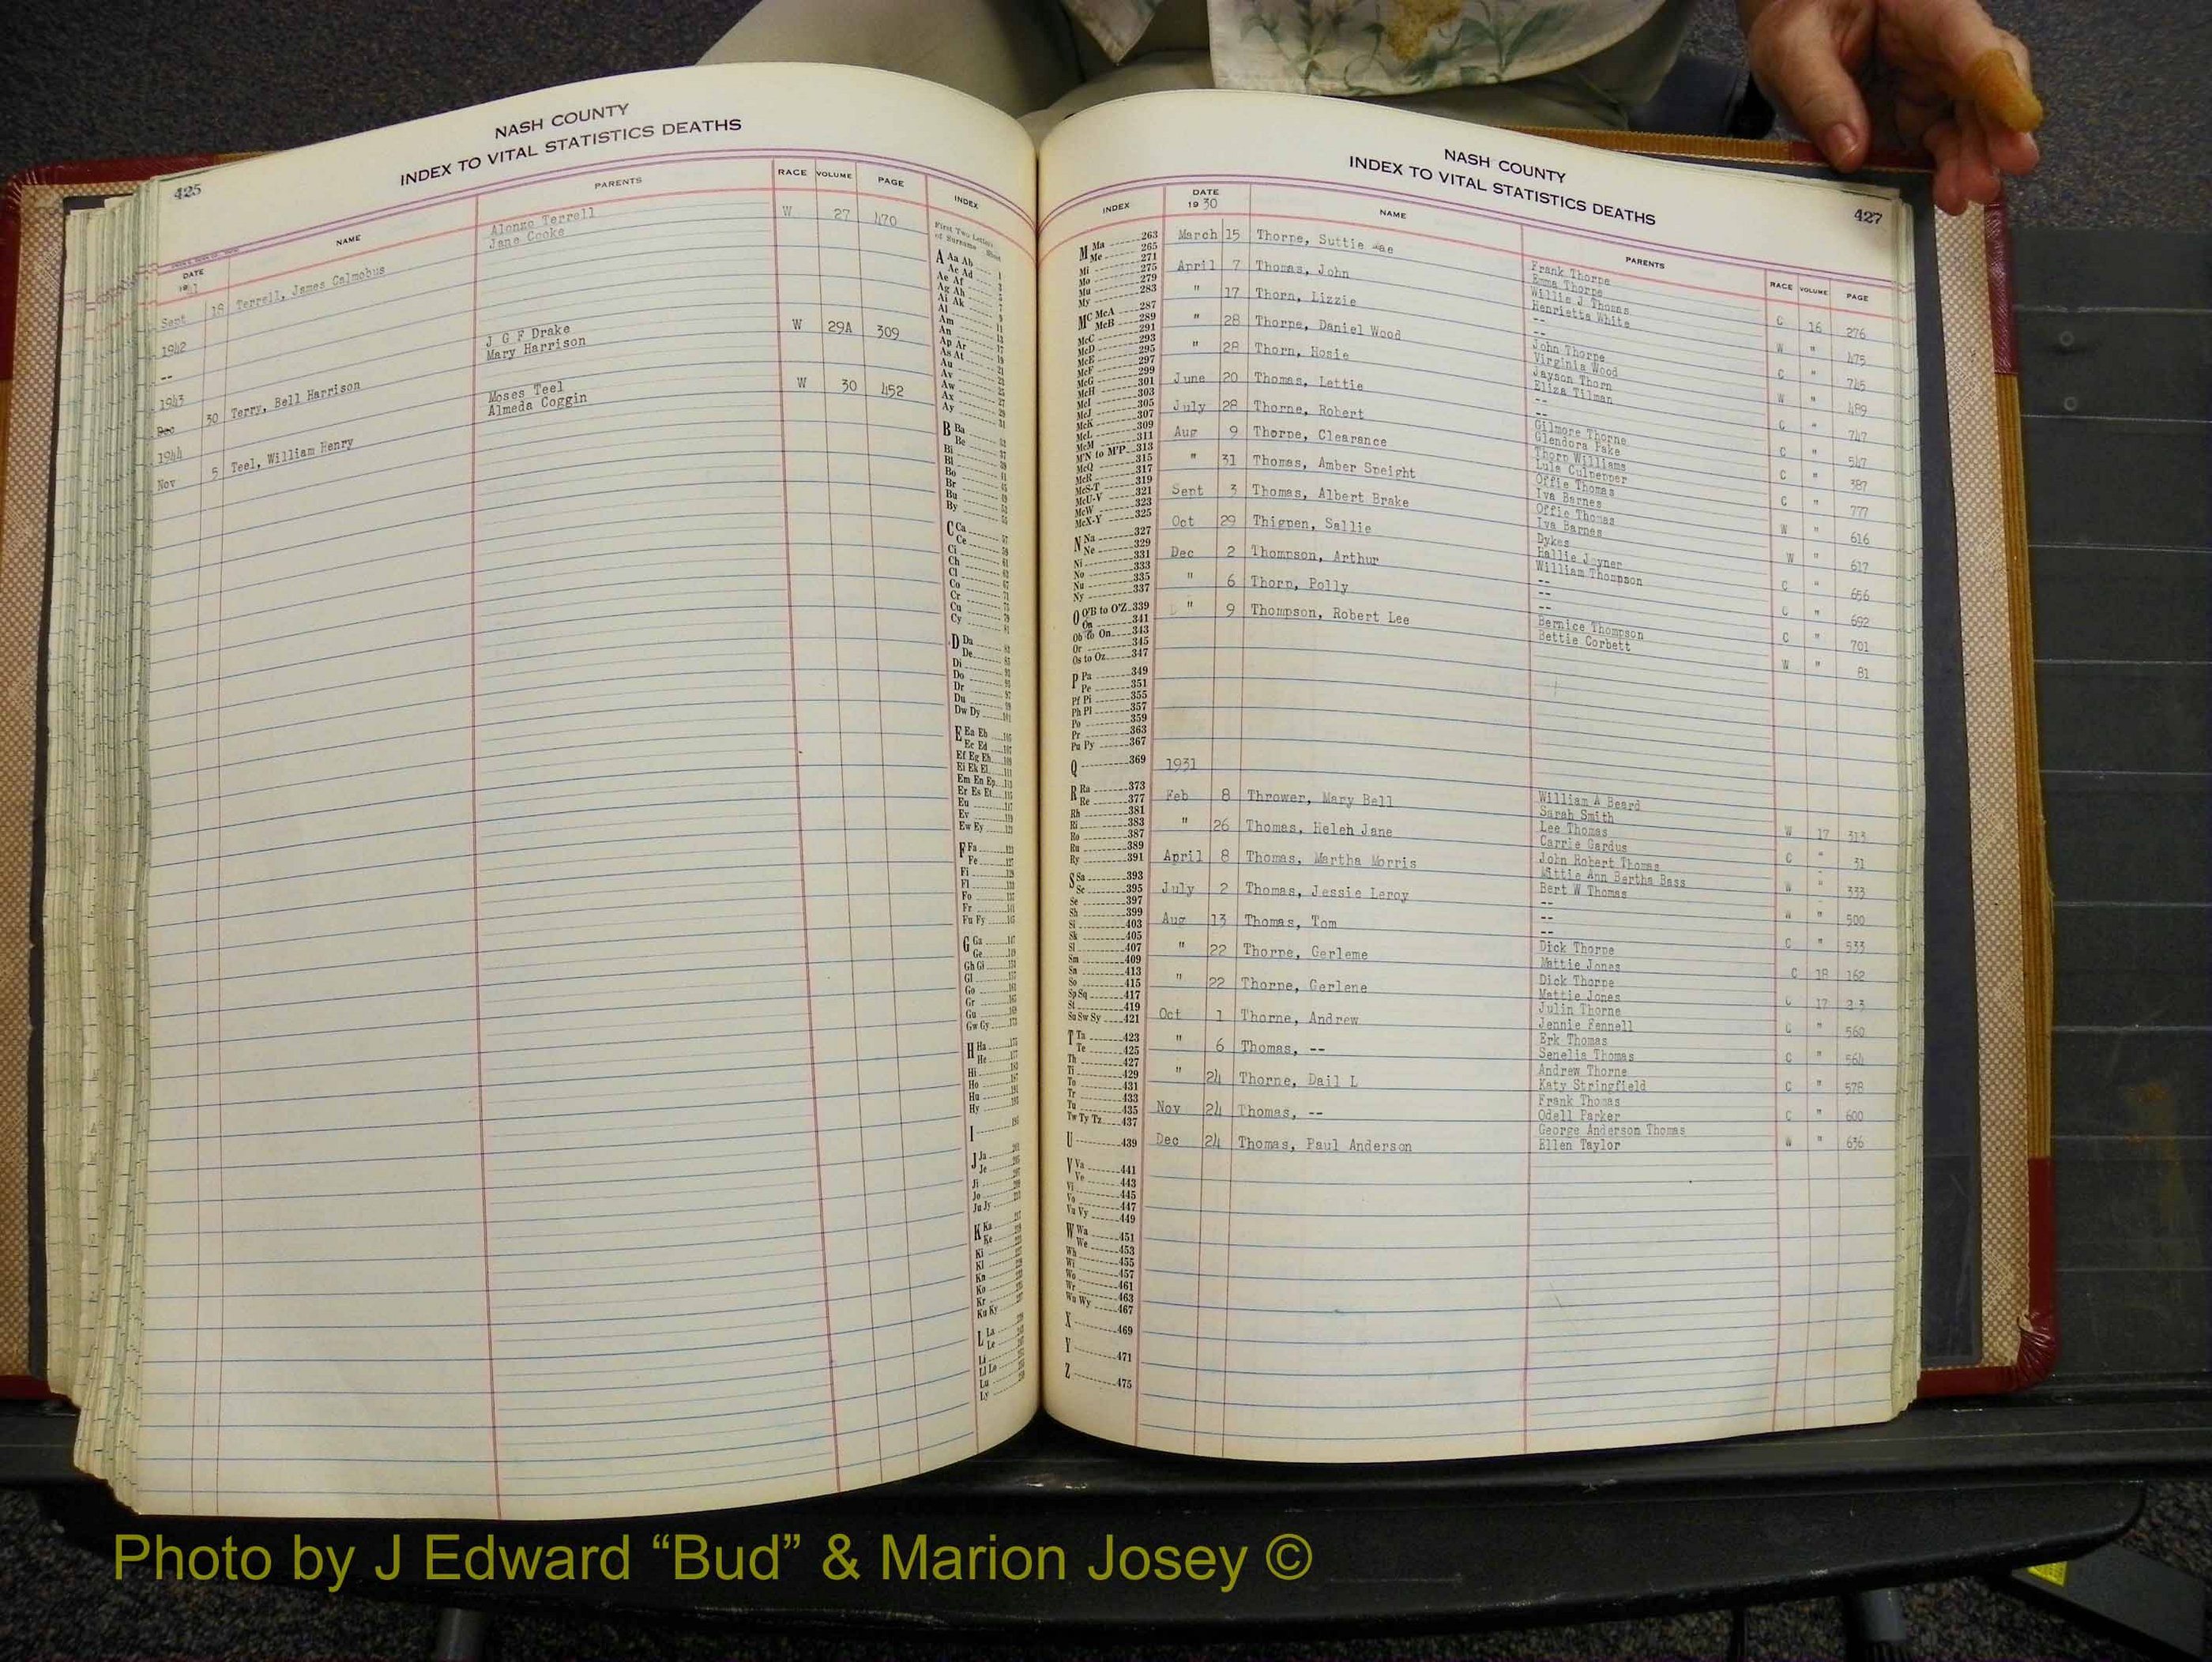 NASH COUNTY
INDEX TO VITAL STATISTICS DEATHS
425
DATE NAME PARENTS RACE VOLUME PAGE INDEX
Alonzo Terrell W 27 470
Jane Cooke
Sept 18 Terrell, James Calmobus
1942
-- J G F Drake W 29A 309
Mary Harrison
1943
Dec 30 Terry, Bell Harrison Moses Teel W 30 452
Almeda Coggin
1944
Nov 5 Teel, William Henry
First Two Letters
of Surname
A Aa Ab
Ac Ad
Ae Af
Ag Ah
Ai Ak
Al
Am
An
Ap Ar
As At
Au
Av
Aw
Ax
Ay
B Ba
Be
Bi
Bl
Bo
Br
Bu
By
C Ca
Ce
Ci
Ch
Cl
Co
Cr
Cu
Cy
D Da
De
Di
Do
Dr
Du
Dw Dy
E Ea Eb
Ec Ed
Ef Eg Eh
Ei Ek El
Em En Ep
Er Es Et
Eu
Ev
Ew Ey
F Fa
Fe
Fi
Fl
Fo
Fr
Fu Fy
G Ga
Ge
Gh Gi
Gl
Go
Gr
Gu
Gw Gy
H Ha
He
Hi
Ho
Hu
Hy
I
J Ja
Je
Ji
Jo
Ju Jy
K Ka
Ke
Ki
Kl
Kn
Ko
Kr
Ku Ky
L La
Le
Li
Ll Lo
Lu
Ly
NASH COUNTY
INDEX TO VITAL STATISTICS DEATHS
427
INDEX DATE NAME PARENTS RACE VOLUME PAGE
1930
M Ma 263
Me 265
Mi 271
Mo 275
Mu 279
My 283
Mc McA 287
McB 289
McC 291
McD 293
McE 295
McF 297
McG 299
McH 301
McI 303
McJ 305
McK 307
McL 309
McM 311
M'N to M'P 313
McQ 315
McR 317
McS-T 319
McU-V 321
McW 323
McX-Y 325
N Na 327
Ne 329
Ni 331
No 333
Nu 335
Ny 337
O O'B to O'Z 339
Oa 341
Ob to On 343
Or 345
Os to Oz 347
P Pa 349
Pe 351
Pf Pi 355
Ph Pl 357
Po 359
Pr 363
Pu Py 367
Q 369
R Ra 373
Re 377
Rh 381
Ri 383
Ro 387
Ru 389
Ry 391
S Sa 393
Sc 395
Se 397
Sh 399
Si 403
Sk 405
Sl 407
Sm 409
Sn 413
So 415
Sp Sq 417
St 419
Su Sw Sy 421
T Ta 423
Te 425
Th 427
Ti 429
To 431
Tr 433
Tu 435
Tw Ty Tz 437
U 439
V Va 441
Ve 443
Vi 445
Vo 447
Vu Vy 449
W Wa 451
We 453
Wh 455
Wi 457
Wo 461
Wr 463
Wu Wy 467
X 469
Y 471
Z 475
March 15 Thorpe, Suttie Frank Thorpe C 16 276
Emma Thorpe
April 7 Thomas, John Willie J Thomas W " 475
Henrietta White
" 17 Thorn, Lizzie -- C " 745
--
" 28 Thorpe, Daniel Wood John Thorpe W " 489
Virginia Wood
" 28 Thorn, Hosie Jayson Thorn C " 747
Eliza Tilman
June 20 Thomas, Lettie -- C " 547
--
July 28 Thorne, Robert Gilmore Thorne C " 387
Glendora Pake
Aug 9 Thorpe, Clearance Thorp Williams C " 777
Lula Culpepper
" 31 Thomas, Amber Speight Offie Thomas W " 616
Iva Barnes
Sept 3 Thomas, Albert Brake Offie Thomas W " 617
Iva Barnes
Oct 29 Thigpen, Sallie Dykes C " 656
Hallie Joyner
Dec 2 Thompson, Arthur William Thompson C " 692
--
" 6 Thorp, Polly -- C " 701
--
" 9 Thompson, Robert Lee Bernice Thompson W " 81
Bettie Corbett
1931
Feb 8 Thrower, Mary Bell William A Beard W 17 313
Sarah Smith
" 26 Thomas, Heleh Jane Lee Thomas C " 31
Carrie Gardus
April 8 Thomas, Martha Morris John Robert Thomas W " 333
Mittie Ann Bertha Bass
July 2 Thomas, Jessie Leroy Bert W Thomas W " 500
--
Aug 13 Thomas, Tom -- C " 533
--
" 22 Thorpe, Gerleme Dick Thorpe C 18 162
Mattie Jones
" 22 Thorne, Gerlene Dick Thorpe C 17
Mattie Jones
Oct 1 Thorne, Andrew Julin Thorne C " 560
Jennie Fennell
" 6 Thomas, -- Erk Thomas C " 564
Senelia Thomas
" 24 Thorne, Dail L Andrew Thorne C " 578
Katy Stringfield
Nov 24 Thomas, -- Frank Thomas C " 600
Odell Parker
Dec 24 Thomas, Paul Anderson George Anderson Thomas W " 636
Ellen Taylor
Photo by J Edward “Bud” & Marion Josey ©